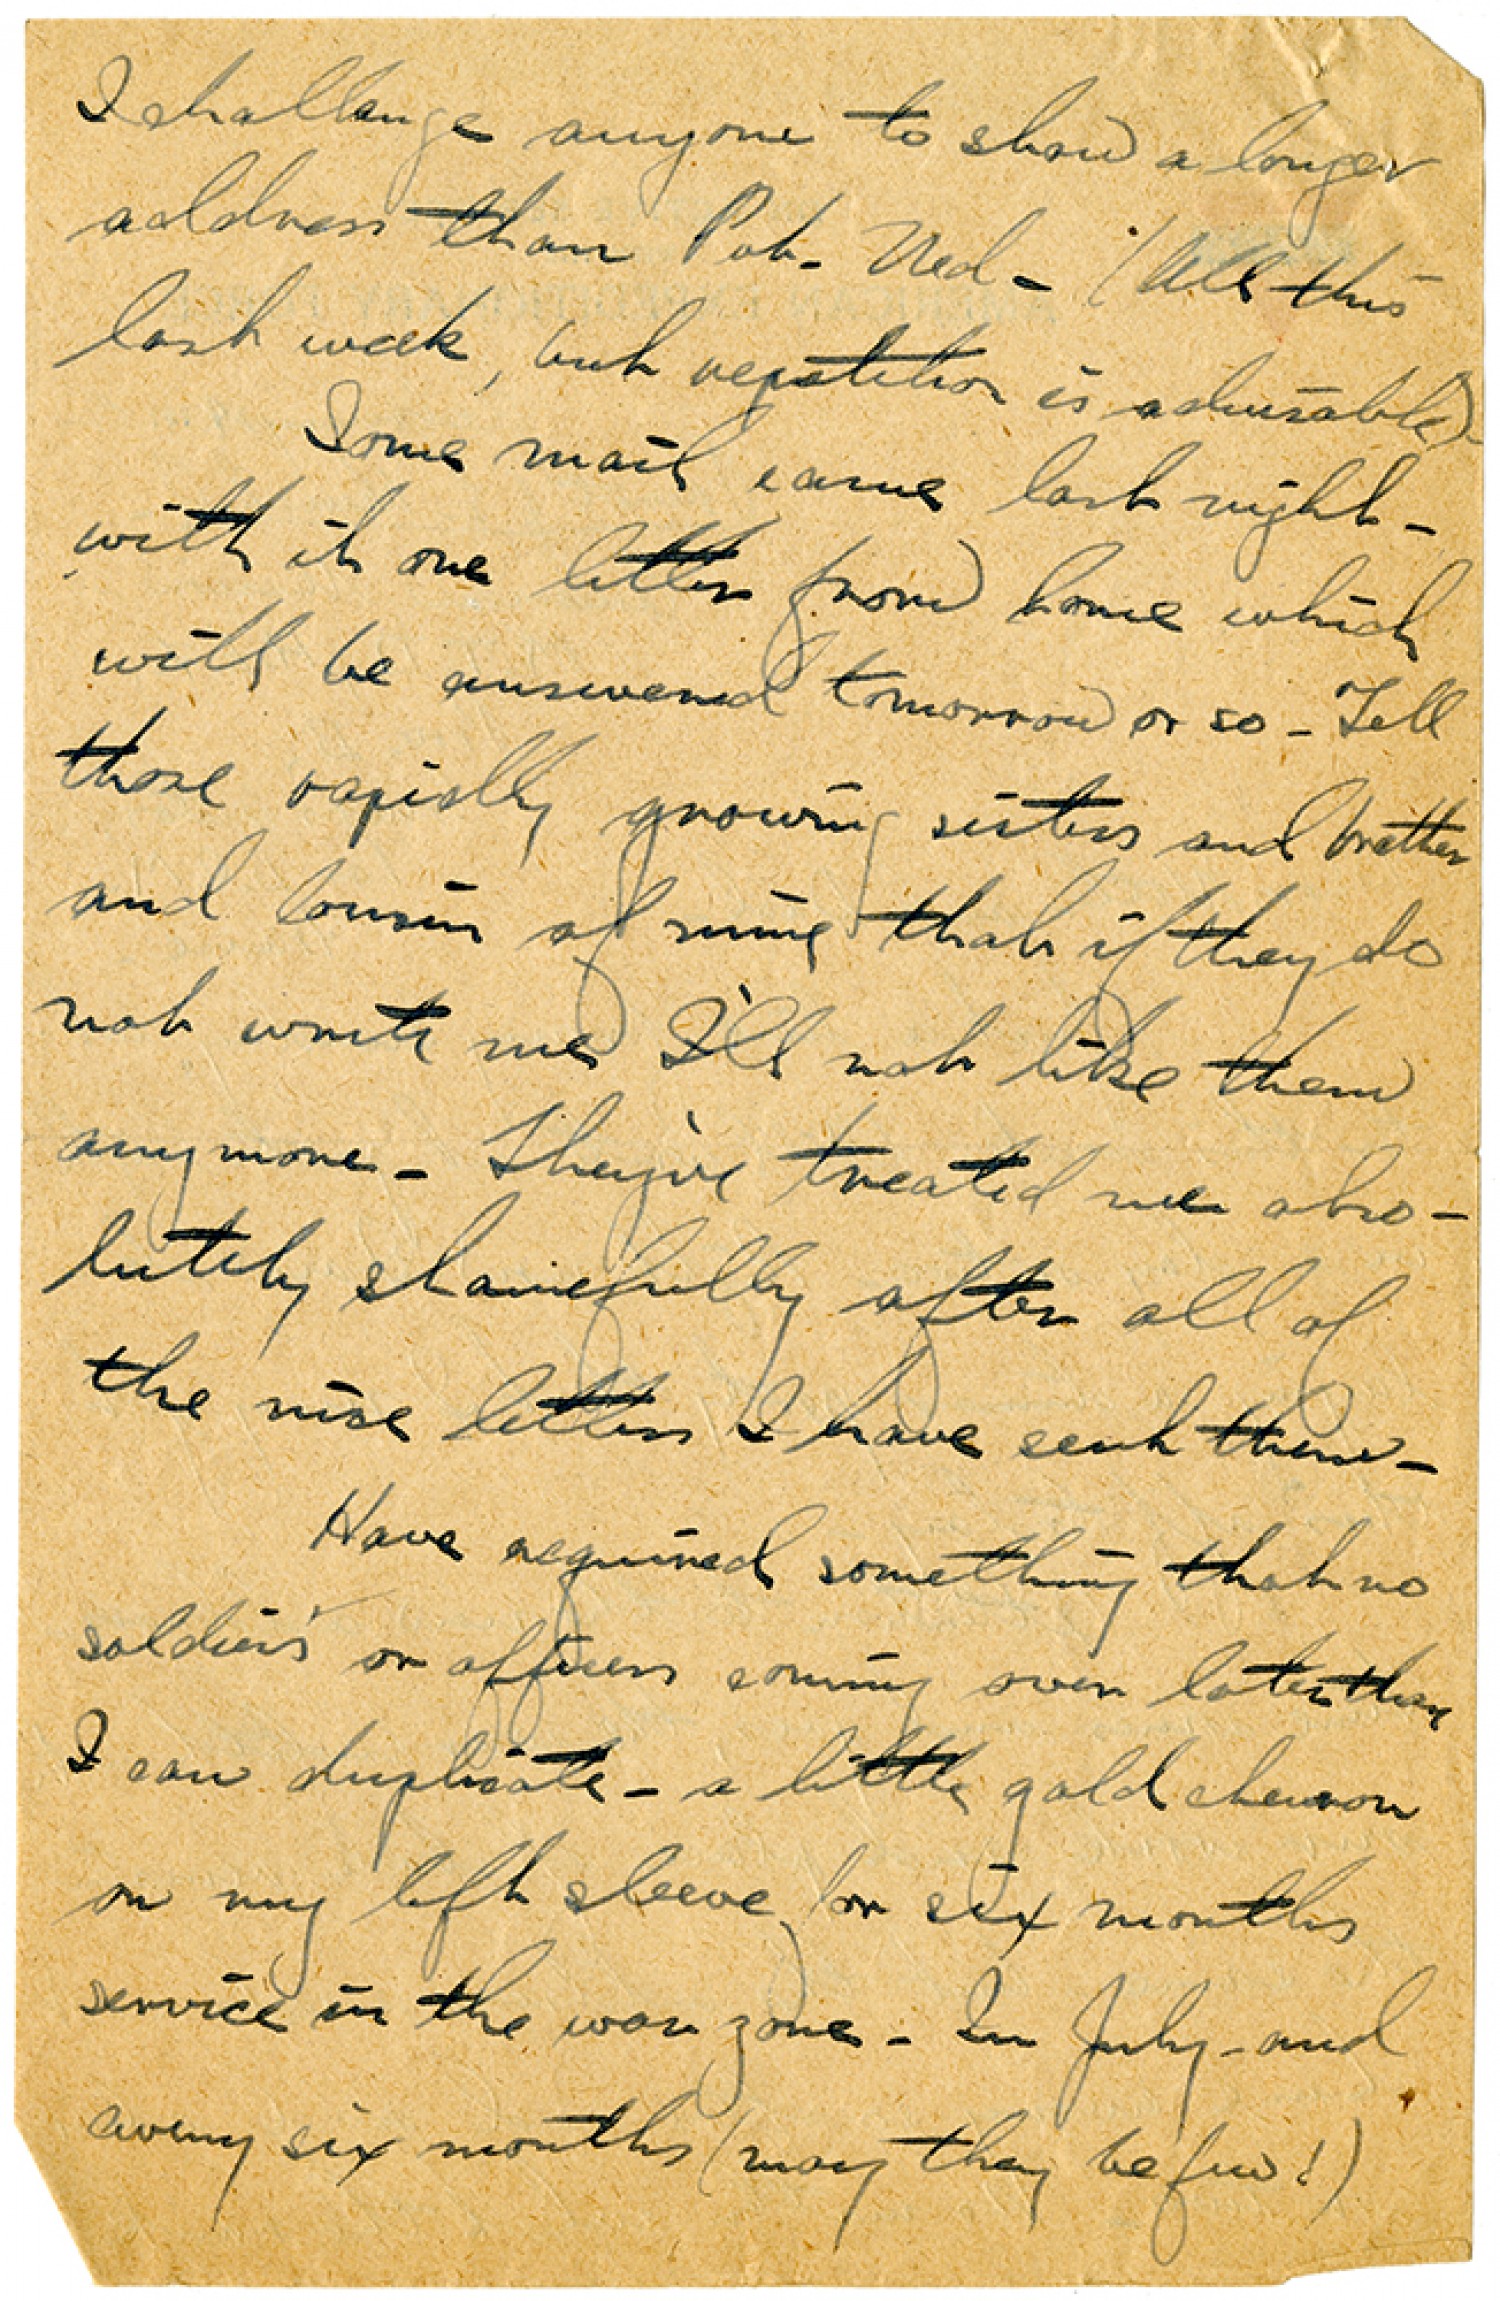 I challenge anyone to show a longer
address than Pvt. Ned - (All this
last week, but repetition is advisable)-
Some mail came last night -
with it one letter from home which
will be answered tomorrow or so - Tell
those rapidly growing sisters and brother
and cousin of mine that if they do
not write me I'll not like them
anymore - They've treated me abso-
lutely shamefully after all of
the nice letters I have sent them -
Have acquired something that no
soldiers or officers coming over later than
I can duplicate - a little gold chevron
on my left sleeve for six months
service in the war zone - In July - and
every six months (may they be few!)